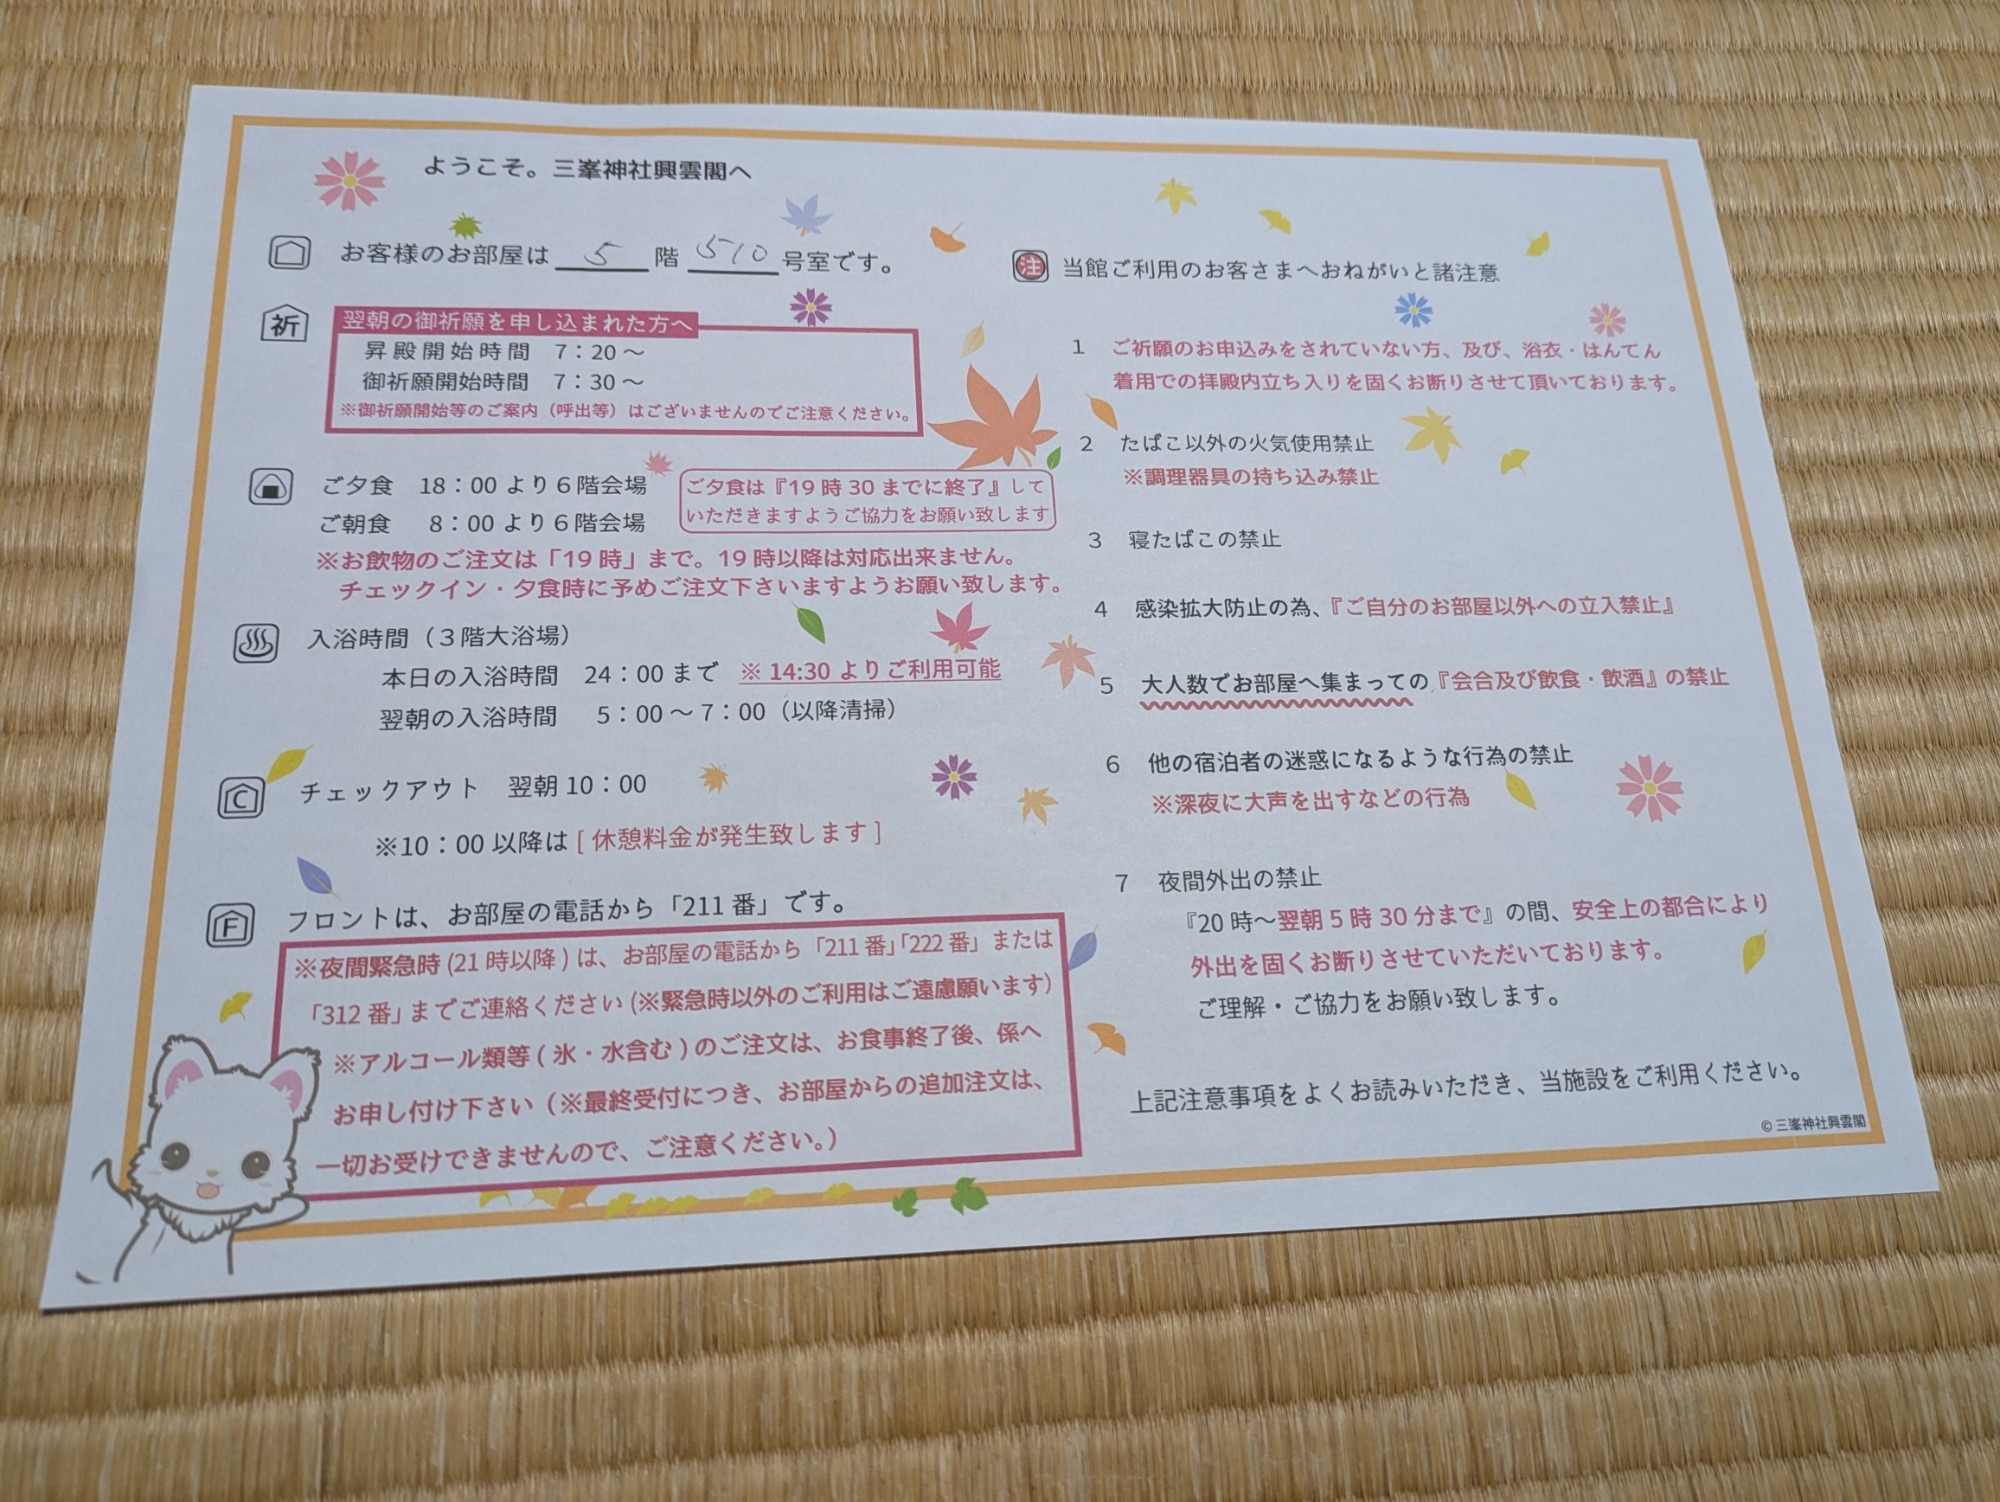 ようこそ。三峯神社興雲閣へ
お客様のお部屋は 5 階 510 号室です。
祈
翌朝の御祈願を申し込まれた方へ
昇殿開始時間 7：20～
御祈願開始時間 7：30～
※御祈願開始等のご案内（呼出等）はございませんのでご注意ください。
ご夕食 18：00 より６階会場
ご朝食 8：00 より６階会場
ご夕食は『19 時 30 までに終了』して
いただきますようご協力をお願い致します
※お飲物のご注文は「19 時」まで。19 時以降は対応出来ません。
チェックイン・夕食時に予めご注文下さいますようお願い致します。
入浴時間（３階大浴場）
本日の入浴時間 24：00 まで ※ 14:30 よりご利用可能
翌朝の入浴時間 5：00～7：00（以降清掃）
C
チェックアウト 翌朝 10：00
※10：00 以降は [ 休憩料金が発生致します ]
F
フロントは、お部屋の電話から「211 番」です。
※夜間緊急時 (21 時以降 ) は、お部屋の電話から「211 番」「222 番」または
「312 番」までご連絡ください (※緊急時以外のご利用はご遠慮願います)
※アルコール類等 ( 氷・水含む ) のご注文は、お食事終了後、係へ
お申し付け下さい（※最終受付につき、お部屋からの追加注文は、
一切お受けできませんので、ご注意ください。）
注
当館ご利用のお客さまへおねがいと諸注意
1 ご祈願のお申込みをされていない方、及び、浴衣・はんてん
着用での拝殿内立ち入りを固くお断りさせて頂いております。
2 たばこ以外の火気使用禁止
※調理器具の持ち込み禁止
3 寝たばこの禁止
4 感染拡大防止の為、『ご自分のお部屋以外への立入禁止』
5 大人数でお部屋へ集まっての『会合及び飲食・飲酒』の禁止
6 他の宿泊者の迷惑になるような行為の禁止
※深夜に大声を出すなどの行為
7 夜間外出の禁止
『20 時～翌朝 5 時 30 分まで』の間、安全上の都合により
外出を固くお断りさせていただいております。
ご理解・ご協力をお願い致します。
上記注意事項をよくお読みいただき、当施設をご利用ください。
© 三峯神社興雲閣